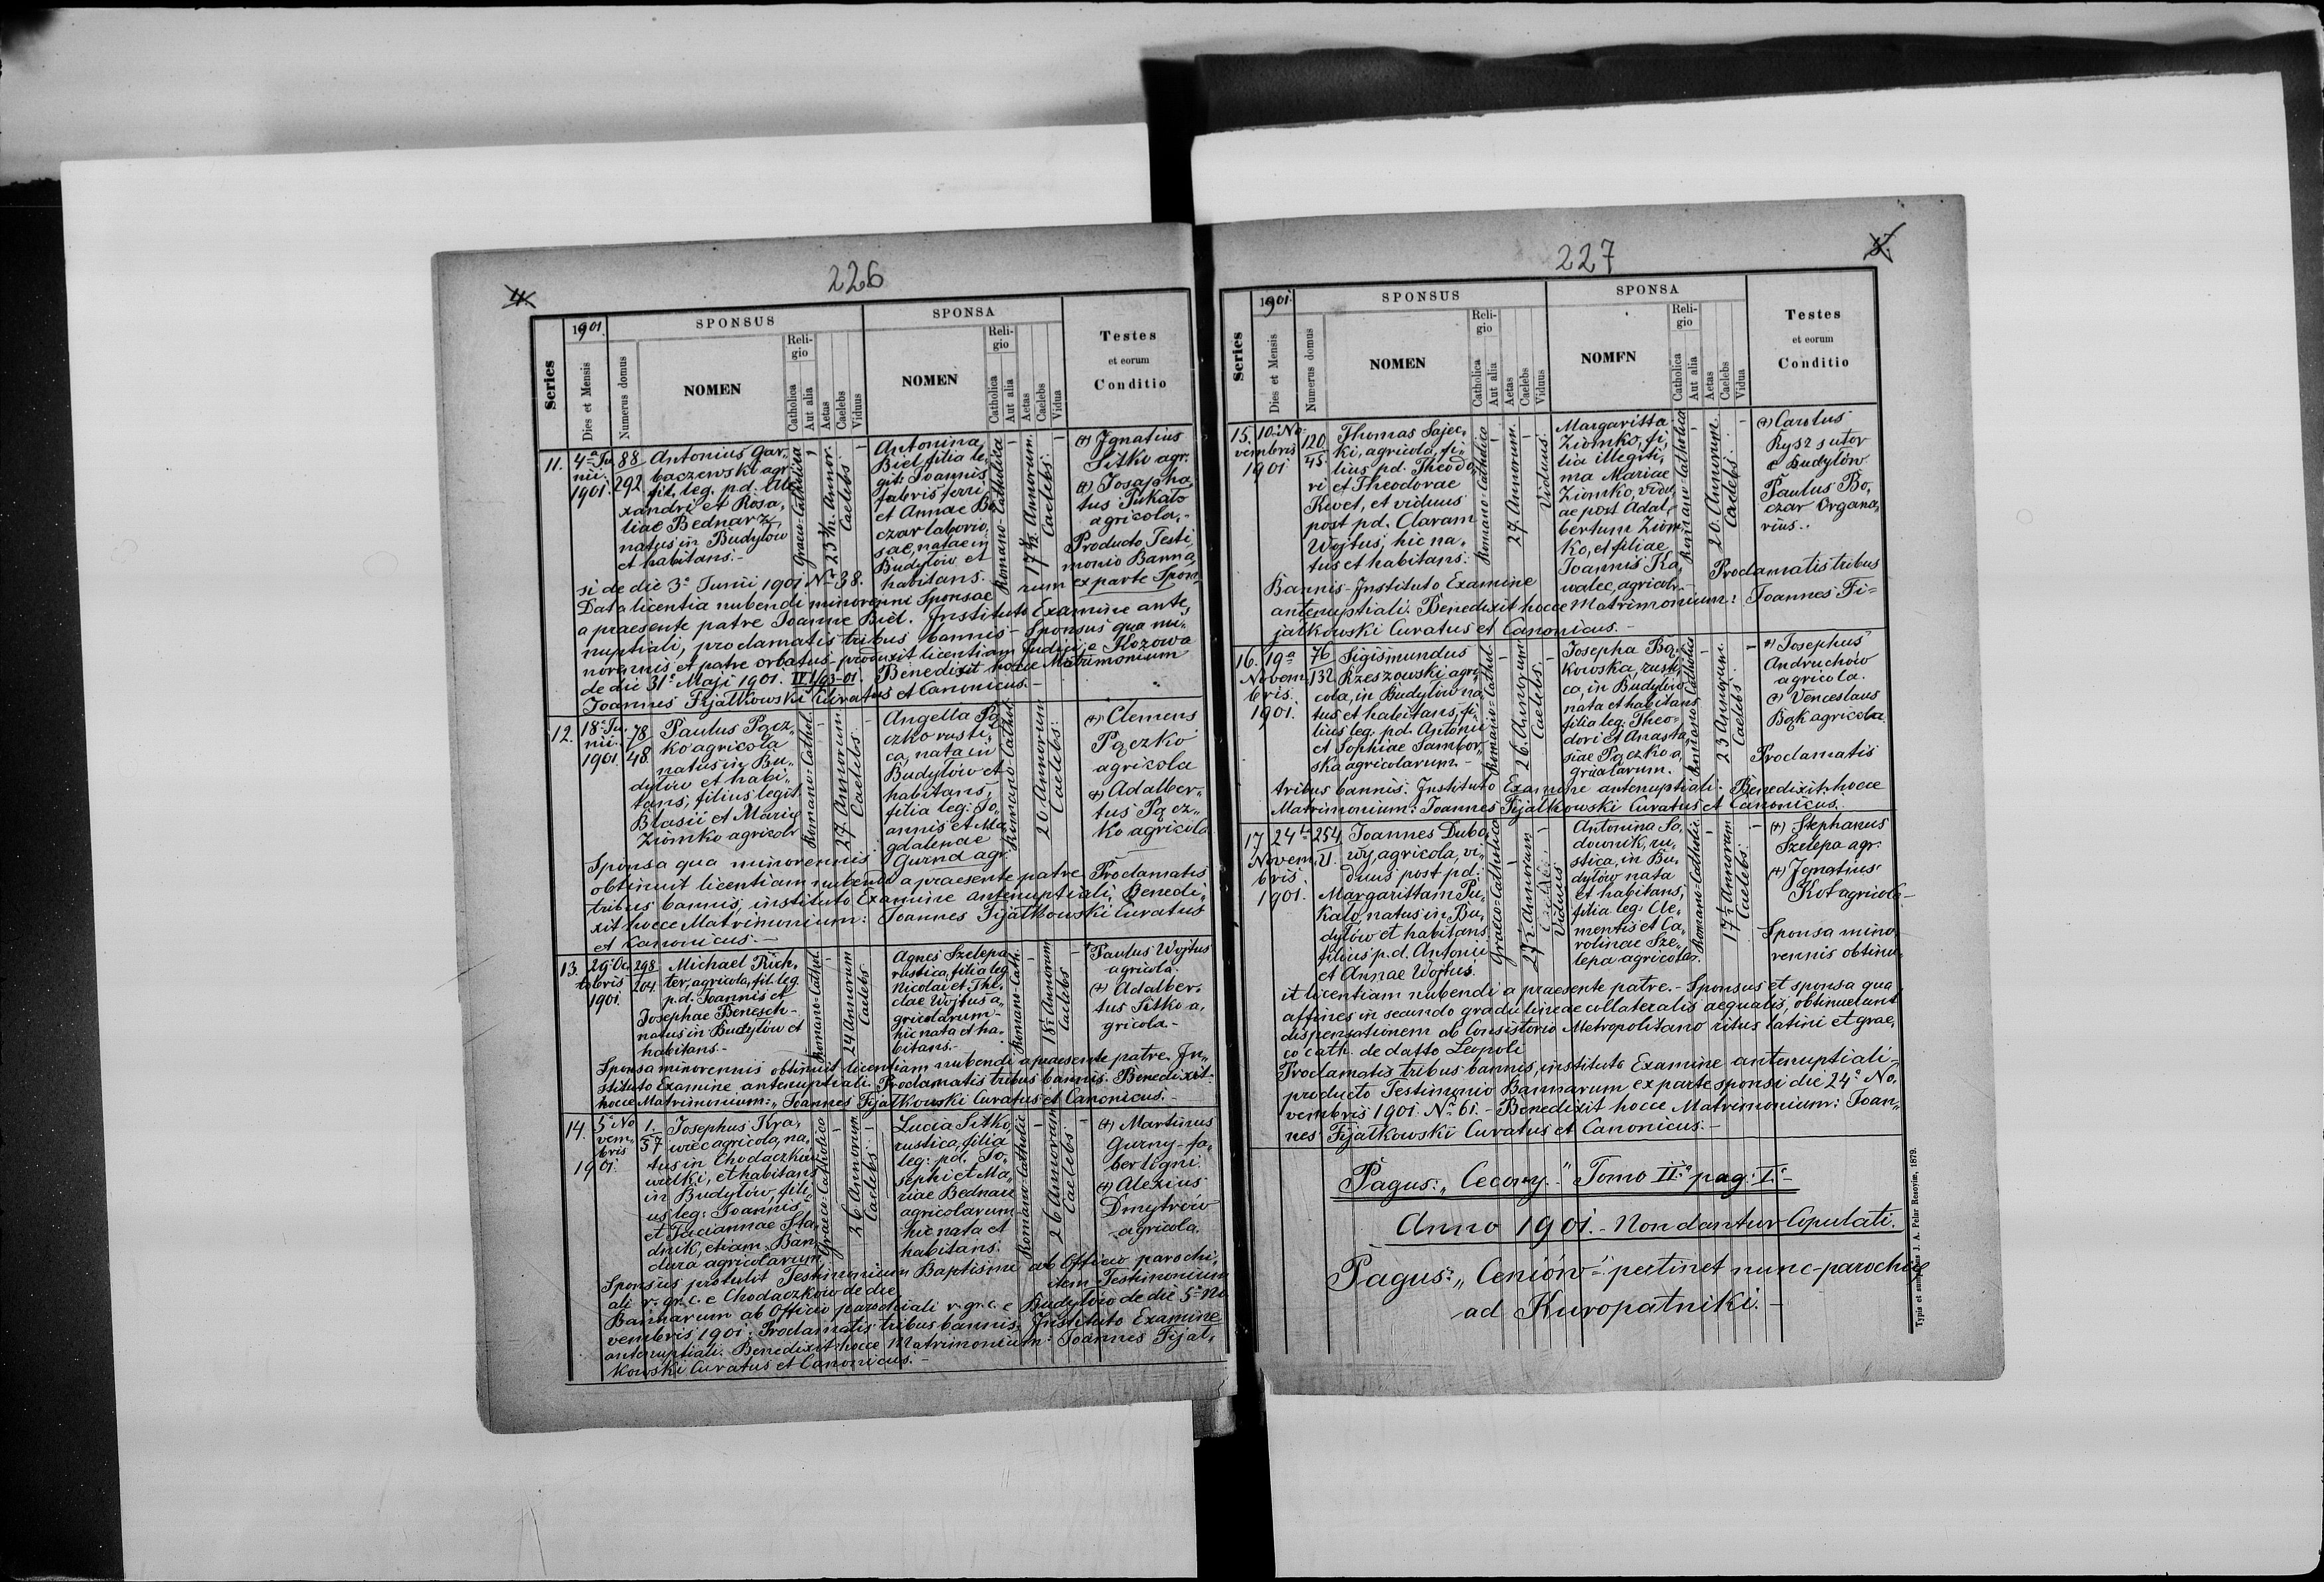 4.
226
1901.
SPONSUS
SPONSA
Series
Dies et Mensis
Numerus domus
NOMEN
Reli-
gio
Catholica
Aut alia
Aetas
Caelebs
Viduus
NOMEN
Reli-
gio
Catholica
Aut alia
Aetas
Caelebs
Vidua
Testes
et eorum
Conditio
11.
4a Ju-
nii
1901.
88
292
Antonius Gar-
baczewski agr.
fil. leg. p.d. Ale
xandri et Rosa-
liae Bednarz,
natus in Budylów
et habitans.-
Graeco-Catholica
Caelebs
Antonina
Biel filia le-
git: Joannis
fabris ferri
et Annae Bo-
czar laborio-
sae, natae in
Budylów et
habitans.
Romano-Catholica
Caelebs
(+) Ignatius
Sitko agr.
(+) Josapha-
tus Pukało
agricola.-
Producto Testi-
monio Banna-
rum ex parte Spon-
si de die 3a Junii 1901 No 38.
Data licentia nubendi minorenni Sponsae
a praesente patre Joanne Biel. Instituto Examine ante-
nuptiali, proclamatis tribus bannis - Sponsus qua mi-
norennis et patre orbatus - produxit licentiam Judicii a Kozowa
de die 31a Maji 1901. Benedixit hocce Matrimonium
Joannes Fijałkowski Curatus et Canonicus.-
12.
18a Ju-
nii
1901.
78
48.
Paulus Pącz-
ko agricola
natus in Bu-
dylów et habi-
tans, filius legit
Blasii et Mariae
Ziomko agricolr
Romano-Cathol.
27. Annorum
Caelebs
Angella Pą-
czko rusti-
ca, nata in
Budylów et
habitans,
filia leg: Jo-
annis et Ma-
gdalenae
Gurna agr.
Romano-Cathol.
20 Annorum
Caelebs
(+) Clemens
Pączko
agricola
(+) Adalber-
tus Pącz-
ko agricola
Sponsa qua minorennis
obtinuit licentiam nubendi a praesente patre. Proclamatis
tribus bannis, instituto Examine antenuptiali, Benedi-
xit hocce Matrimonium: Joannes Fijałkowski Curatus
et Canonicus.-
13.
29a Oc-
tobris
1901.
298
204.
Michael Rich-
ter, agricola, fil. leg.
p.d. Joannis et
Josephae Benesch-
natus in Budylów et
habitans.-
Romano-Cathol.
24 Annorum
Caelebs
Agnes Szelepa
rustica, filia leg
Nicolai et The-
clae Wojtus a-
gricolarum-
hic nata et ha-
bitans.-
Romano-Cath.
Caelebs
+ Paulus Wojtus
agricola.
(+) Adalber-
tus Sitko a-
gricola.-
Sponsa minorennis obtinuit licentiam nubendi a praesente patre. In-
stituto Examine antenuptiali. Proclamatis tribus bannis. Benedixit
hocce Matrimonium:" Joannes Fijałkowski Curatus et Canonicus.-
14.
5a No
vem-
bris
1901.
1.
57
Josephus Kra-
wiec agricola, na-
tus in Chodaczków
wielki, et habitans
in Budylów, fili-
us leg: Joannis
et Taciannae Sta-
dnik, etiam Ban-
dura agricolarum
Graeco-Catholica
26 Annorum
Caelebs
Lucia Sitko
rustica, filia
leg: p.d. Jo-
sephi et Ma-
riae Bednarz
agricolarum
hic nata et
habitans.
Romano-Catholic
26 Annorum
Caelebs
(+) Martinus
Gurny-fa-
ber ligni
(+) Alexius
Dmytrów
agricola.
Sponsus protulit Testimonium Baptismi ab Officio parochi-
ali r. gr. c. e Chodaczków de die item Testimonium
Bannarum ab Officio parochiali r. gr. c. e Budylów de die 5a No
vembris 1901. Proclamatis tribus bannis, Instituto Examine
antenuptiali. Benedixit hocce Matrimonium: Joannes Fijał-
kowski Curatus et Canonicus.-
227
1901.
SPONSUS
SPONSA
Series
Dies et Mensis
Numerus domus
NOMEN
Reli-
gio
Catholica
Aut alia
Aetas
Caelebs
Viduus
NOMEN
Reli-
gio
Catholica
Aut alia
Aetas
Caelebs
Vidua
Testes
et eorum
Conditio
15.
10a No-
vembris
1901
120
45.
Thomas Sajec-
ki, agricola, fi-
lius p.d. Theodo-
ri et Theodorae
Kwet, et viduus
post p.d. Claram
Wojtus, hic na-
tus et habitans.
Romano-Catholica
27. Annorum.
Viduus.
Margaritta
Ziomko, fi-
lia illegiti-
ma Mariae
Ziomko, vidu-
ae post Adal-
bertum Ziom-
ko, et filiae
Joannis Ka-
walec, agricolr-
Romano-Catholica
20. Annorum.
Caelebs
(+) Carolus
Rysz sutor
e Budylów
Paulus Bo-
czar Organa-
rius..
Proclamatis tribus
Bannis - Instituto Examine
antenuptiali. Benedixit hocce Matrimonium: Joannes Fi-
jałkowski Curatus et Canonicus.-
16.
19a
Novem-
bris.
1901.
76
132
Sigismundus
Rzeszowski agri-
cola, in Budylów na-
tus et habitans, fi-
lius leg. p.d. Antonii
et Sophiae Sambor-
ska agricolarum.-
Romano-Cathol.
26. Annorum
Caelebs.
Josepha Bą-
kowska, rusti-
ca, in Budylów
nata et habitans
filia leg: Theo-
dori et Anasta-
siae Pączko a-
gricolarum.
Romano-Catholic
23 Annorum.
Caelebs
+) Josephus
Andruchów
agricola.
+) Venceslaus
Bąk agricola.
Proclamatis
tribus bannis. Instituto Examine antenuptiali. Benedixit hocce
Matrimonium: Joannes Fijałkowski Curatus et Canonicus.
17
24ta
Novem-
bris
1901.
254
Joannes Dubo-
wy, agricola, vi-
duus post p.d.
Margarittam Pu-
kało, natus in Bu-
dylów et habitans
filius p.d. Antonii
et Annae Wojtus.
Graeco-Catholica
Viduus
Antonina Sa-
downik, ru-
stica, in Bu-
dylów nata
et habitans,
filia leg: Cle-
mentis et Ca-
rolinae Sze-
lepa agricolar.
Romano-Catholic.
Caelebs
(+) Stephanus
Szelepa agr.
(+) Ignatius
Kot agricola-
Sponsa mino-
rennis obtinu-
it licentiam nubendi a praesente patre.- Sponsus et sponsa qua
affines in secundo gradu lineae collateralis aequalis, obtinuerunt
dispensationem ab Consistorio Metropolitano ritus latini et grae-
co cath. de datto Leopoli
Proclamatis tribus bannis, instituto Examine antenuptiali-
producto Testimonio Bannarum ex parte sponsi die 24a No-
vembris 1901. No 61.- Benedixit hocce Matrimonium: Joan-
nes Fijałkowski Curatus et Canonicus.-
Pagus: „Cecory." Tomo IIo pag: I.-
Anno 1901.- Non dantur Copulati.
Pagus: „Ceniów": pertinet nunc - parochiae
ad Kuropatniki.-
Typis et sumptibus J. A. Pelar Resoviae, 1879.